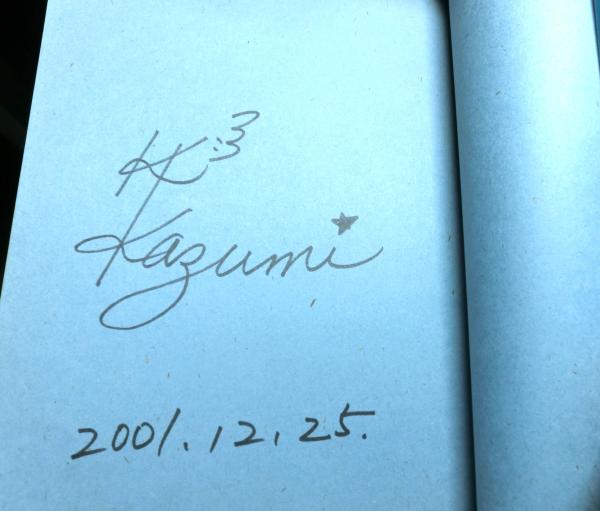 K:3
Kazumi
2001.12.25.